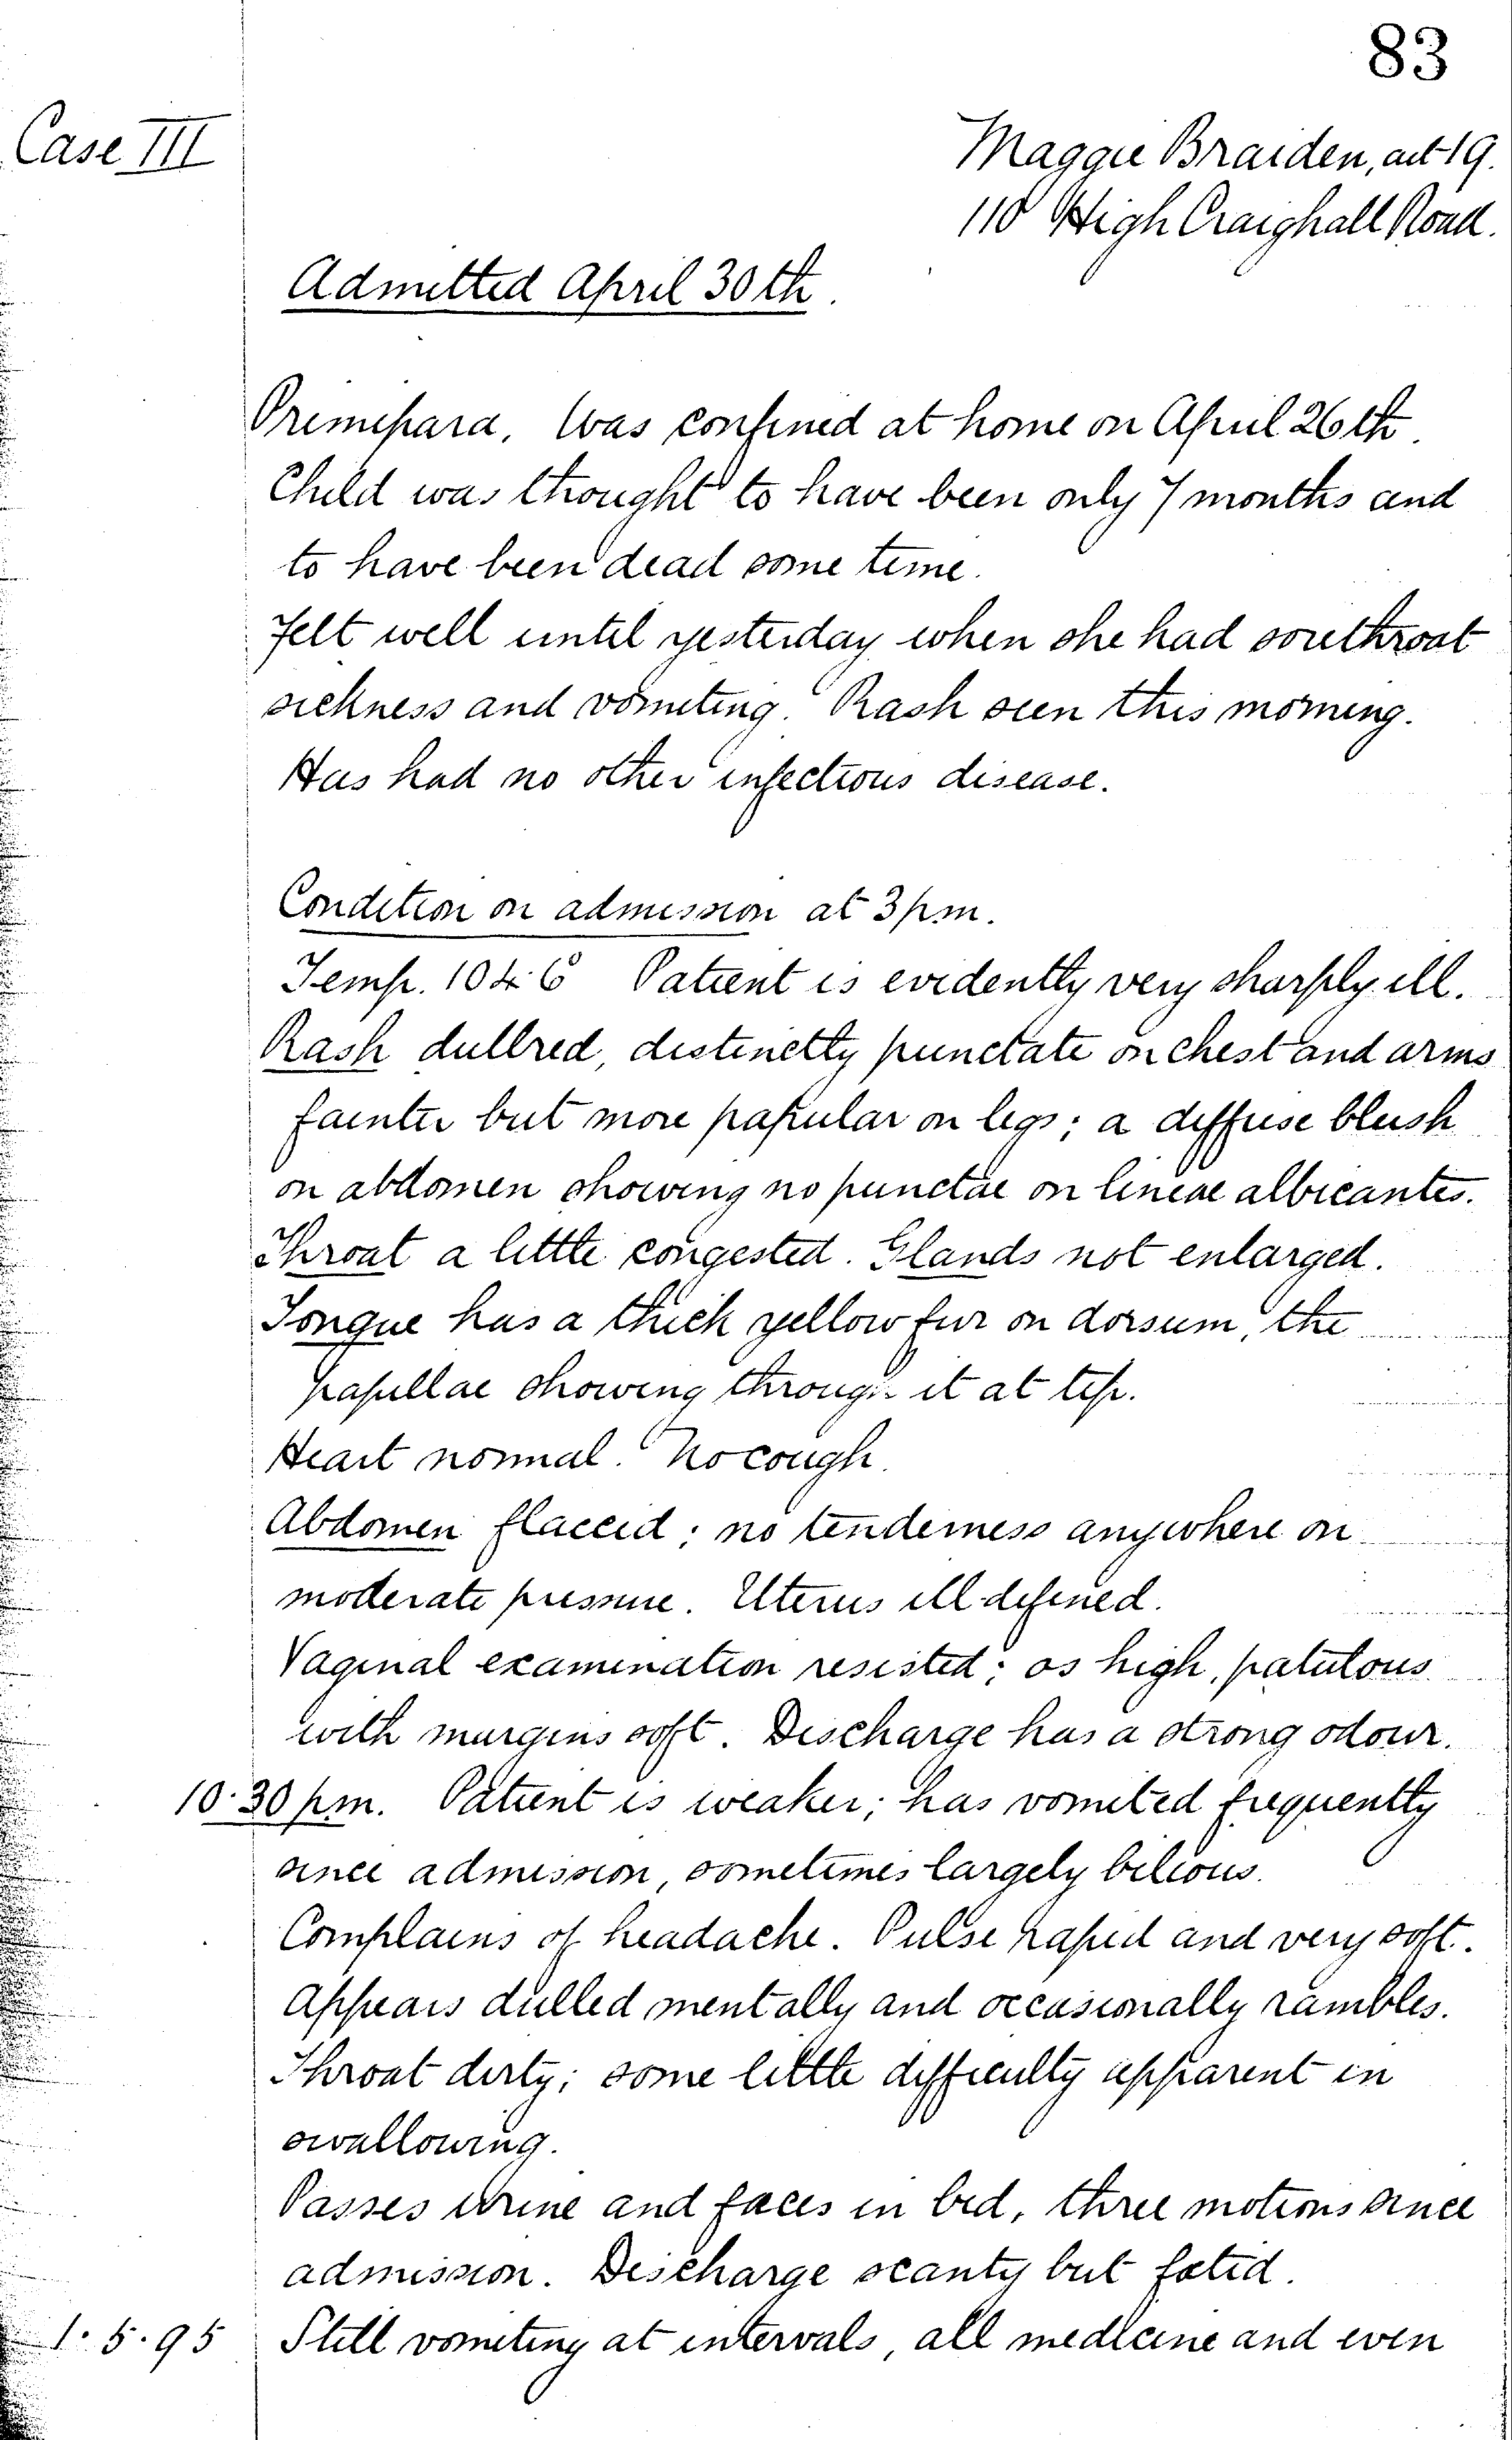 83
Case III
Maggie Braiden, aet 19.
110 High Craighall Road.
Admitted April 30th.
Primipara. Was confined at home on April 26th.
Child was thought to have been only 7 months and
to have been dead some time.
Felt well until yesterday when she had sorethroat
sickness and vomiting. Rash seen this morning.
Has had no other infectious disease.
Condition on admission at 3 p.m.
Temp. 104.6° Patient is evidently very sharply ill.
Rash dull red, distinctly punctate on chest and arms
fainter but more papular on legs; a diffuse blush
on abdomen showing no punctae on lineae albicantes.
Throat a little congested. Glands not enlarged.
Tongue has a thick yellow fur on dorsum, the
papillae showing through it at tip.
Heart normal. No cough.
Abdomen flaccid; no tenderness anywhere on
moderate pressure. Uterus ill-defined.
Vaginal examination resisted; os high, patulous
with margins soft. Discharge has a strong odour.
10.30 p.m. Patient is weaker; has vomited frequently
since admission, sometimes largely bilious.
Complains of headache. Pulse rapid and very soft.
Appears dulled mentally and occasionally rambles.
Throat dirty; some little difficulty apparent in
swallowing.
Passes urine and faces in bed, three motions since
admission. Discharge scanty but fœtid.
1.5.95 Still vomiting at intervals, all medicine and even